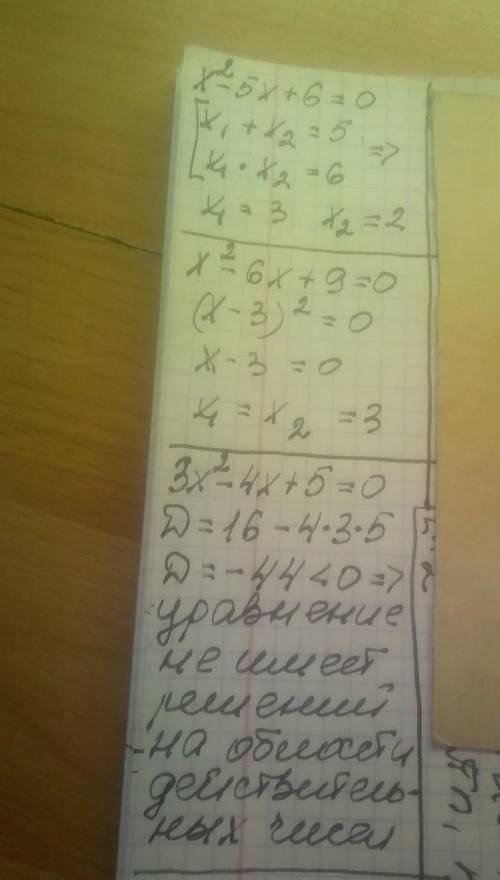 x² - 5x + 6 = 0
[x₁ + x₂ = 5
x₁ · x₂ = 6 =>
x₁ = 3 x₂ = 2
x² - 6x + 9 = 0
(x - 3)² = 0
x - 3 = 0
x₁ = x₂ = 3
3x² - 4x + 5 = 0
D = 16 - 4·3·5
D = -44 < 0 =>
уравнение
не имеет
решений
на области
действитель-
ных чисел